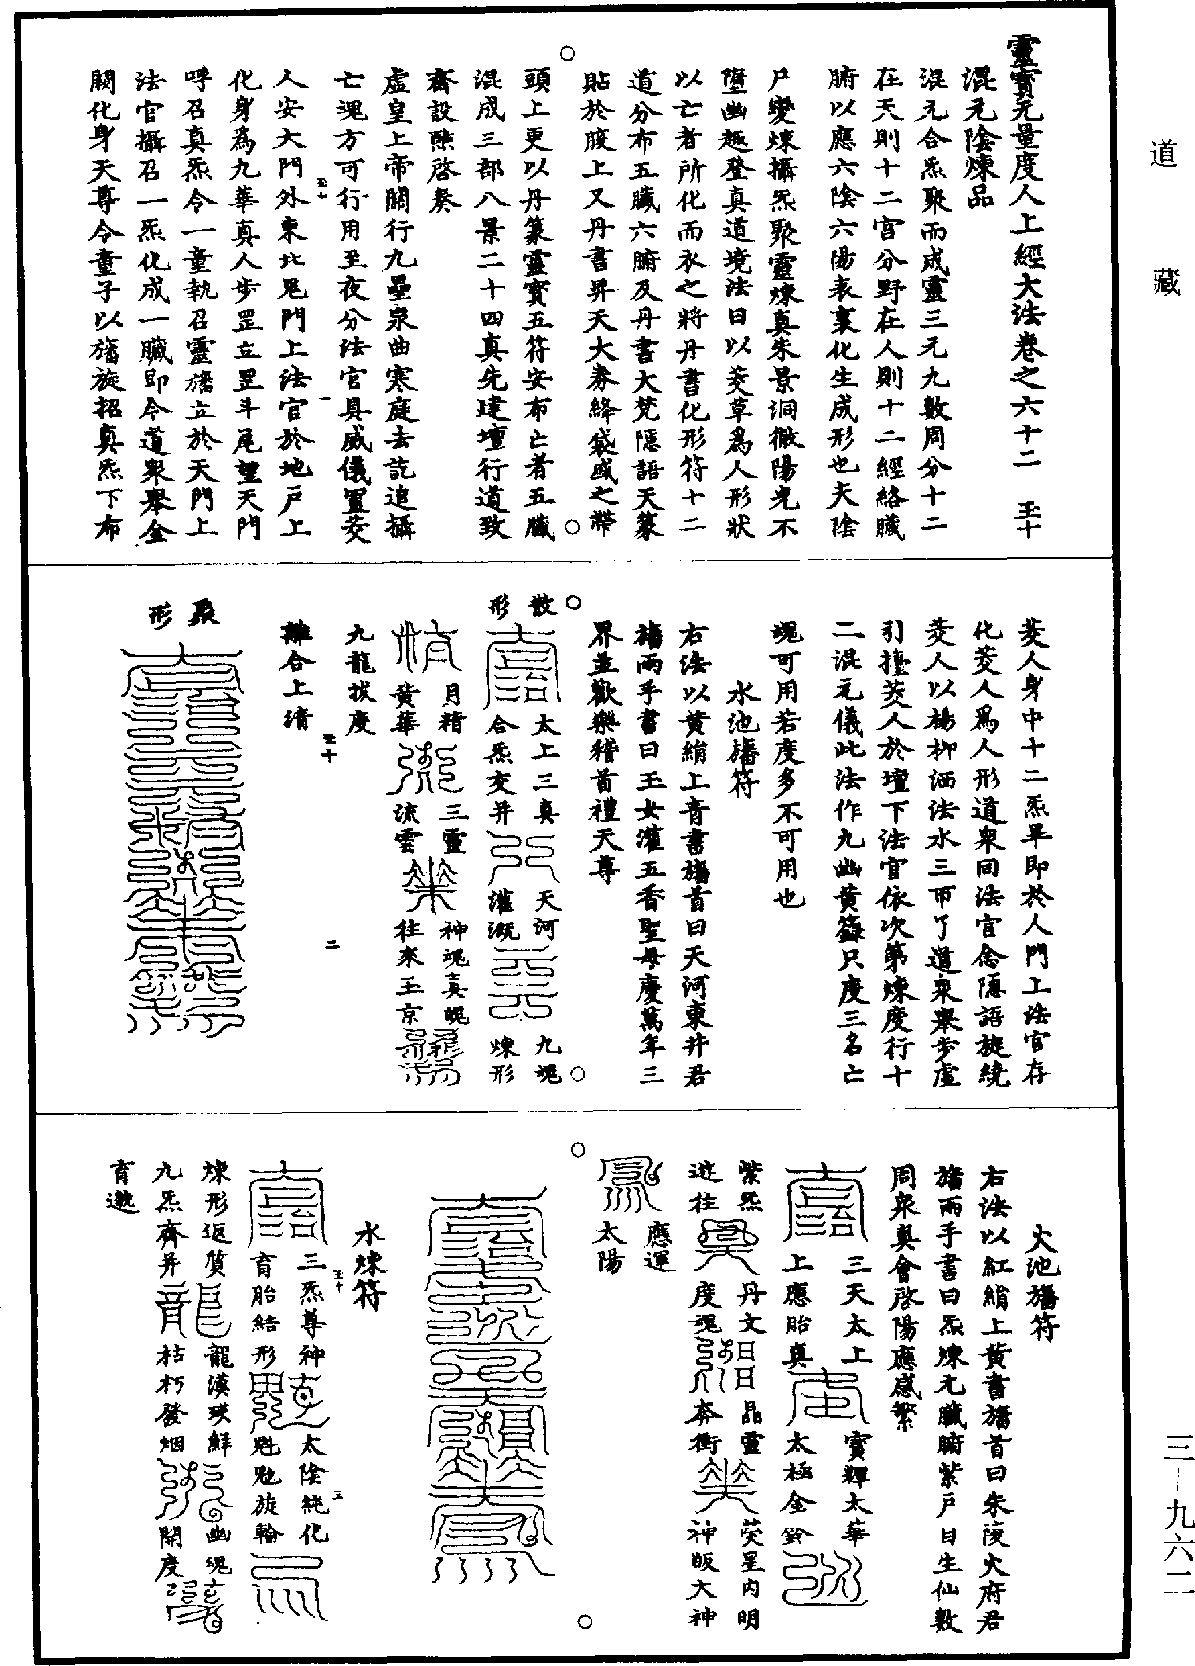 道藏
三－九六二
靈寶无量度人上經大法卷之六十二 玉十
混元陰煉品
混元合炁聚而成靈三元九數周分十二
在天則十二宫分野在人則十二經絡臟
腑以應六陰六陽表裏化生成形也夫陰
尸變煉攝炁聚靈煉真朱景洞徹陽光不
墮幽趣登真道境法曰以茭草爲人形狀
以亡者所化而衣之將丹書化形符十二
道分布五臟六腑及丹書大梵隱語天篆
貼於腹上又丹書昇天大券絳袋盛之帶
頭上更以丹篆靈寳五符安布亡者五臟
混成三部八景二十四真先建壇行道致
齋設醮啓奏
虛皇上帝關行九壘泉曲寒庭去訖追攝
亡魂方可行用至夜分法官具威儀置茭
玉十 一
人安大門外東北鬼門上法官於地戸上
化身爲九華真人步罡立罡斗尾望天門
呼召真炁令一童執召靈旛立於天門上
法官攝召一炁化成一臟即令道衆舉金
闕化身天尊令童子以旛旋招真炁下布
茭人身中十二炁畢即於人門上法官存
化茭人爲人形道衆同法官念隱語旋繞
茭人以楊柳洒法水三帀了道衆舉步虛
引擡茭人於壇下法官依次第煉度行十
二混元儀此法作九幽黄籙只度三名亡
魂可用若度多不可用也
水池旛符
右法以黄絹上青書旛首曰天河東井君
旛兩手書曰玉女灌五香聖母慶萬年三
界並歡樂稽首禮天尊
散形
太上三真
合炁交并
天河
灌溉
九魂
煉形
月精
黄華
三靈
流雲
神魂真魄
往來玉京
九龍拔度
玉十 二
離合上清
聚形
火池旛符
右法以紅絹上黄書旛首曰朱陵火府君
旛兩手書曰炁煉元臟腑紫戸自生仙數
周衆真會啓陽應感繁
三天太上
上應胎真
寳輝太華
太極金鈴
紫炁
遊往
丹文
度魂
晶靈
奔衝
熒星内明
神販大神
應運
太陽
水煉符
玉十 三
三炁尊神
育胎結形
太陰純化
魁魁旋輪
煉形返質
龍漢瑛鮮
幽魂
九炁齊并
枯朽發烟
開度
育遯